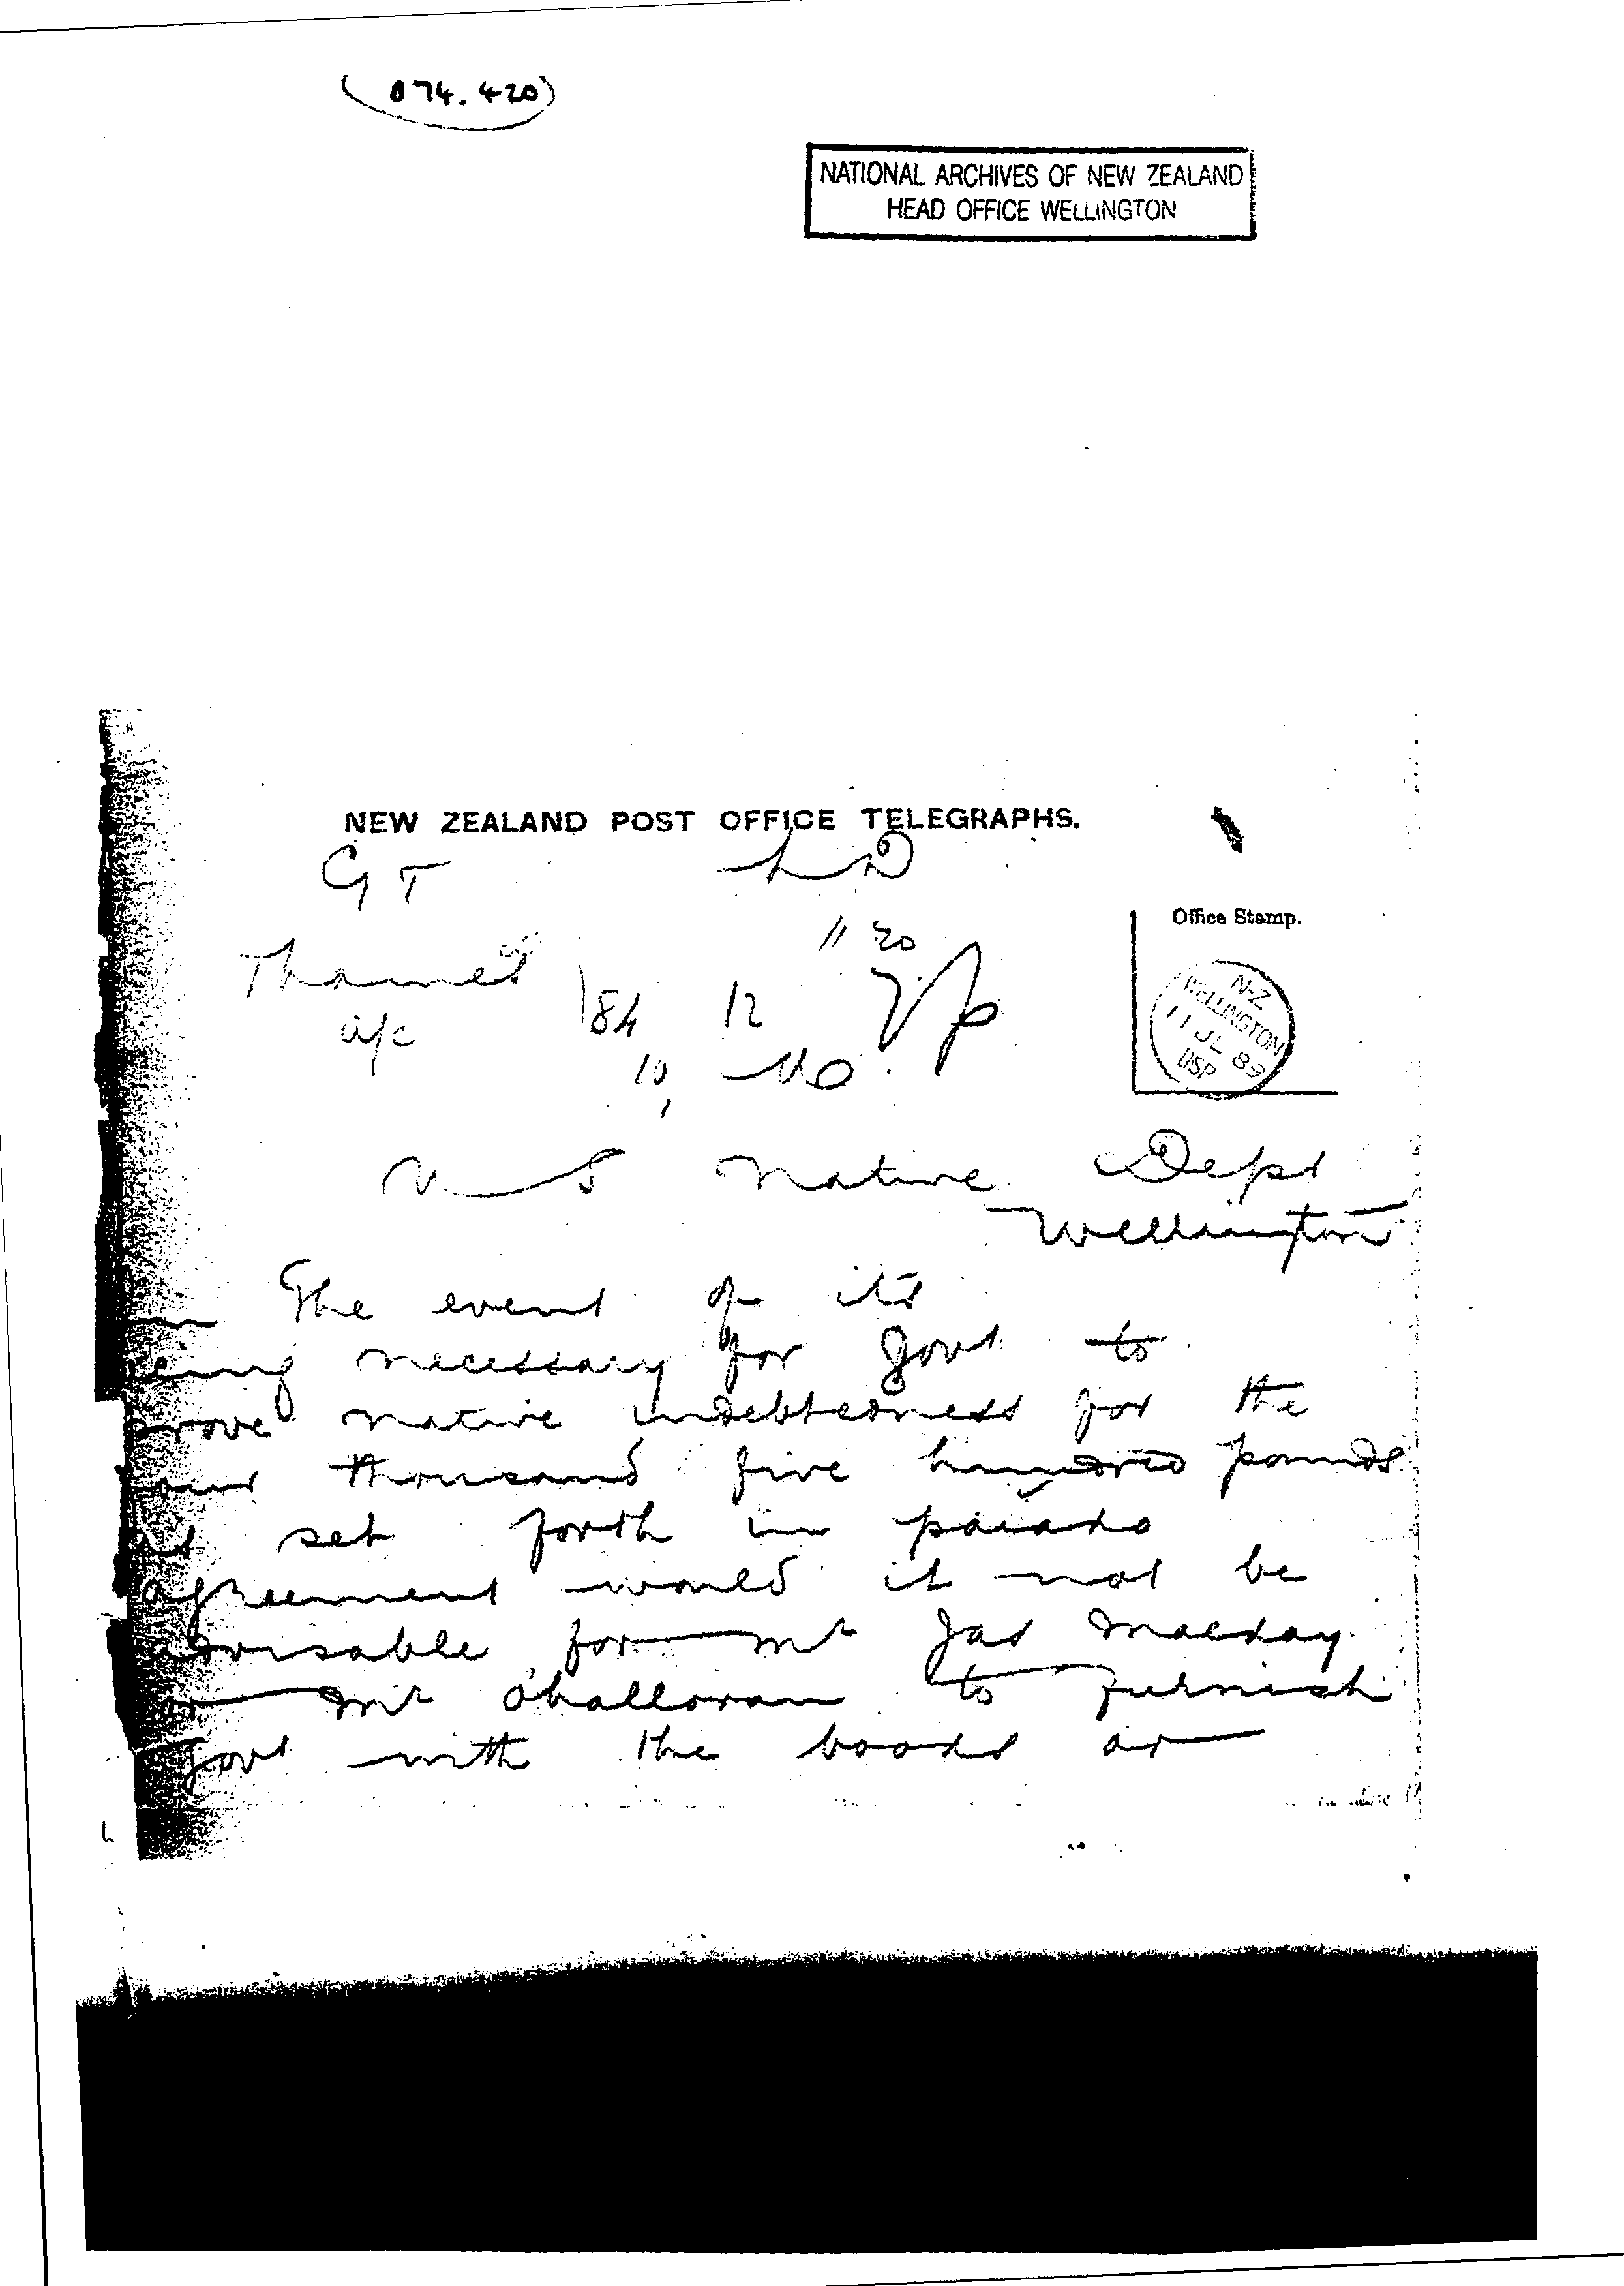 (074.420)
NATIONAL ARCHIVES OF NEW ZEALAND
HEAD OFFICE WELLINGTON
NEW ZEALAND POST OFFICE TELEGRAPHS.
GT
11 20
Office Stamp.
Thames
184 12
a/c
10
N-Z
WELLINGTON
11 JL 89
U S Native Dept
Wellington
The event of its
being necessary for Govt to
prove native indebtedness for the
four thousand five hundred pounds
as set forth in
agreement would it not be
advisable for Mr Jas Mackay
or Mr O'halloran to furnish
Govt with the books or